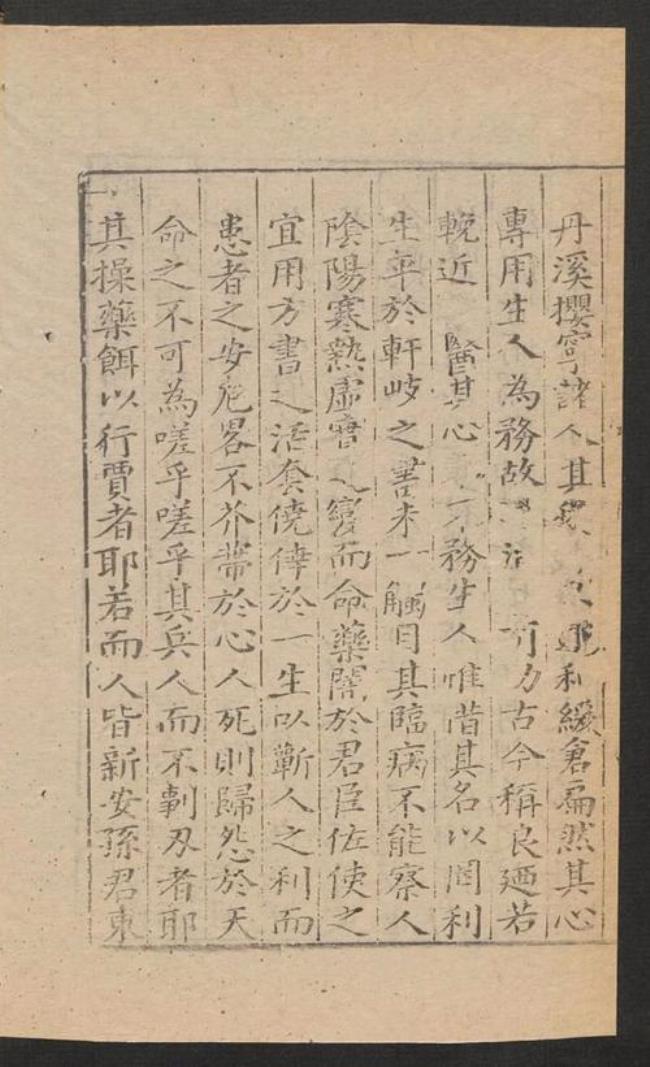 丹溪攖寧諸人其和緩倉扁然其心
專用生人為務故有力古今稱良廼若
輓近醫其心不務生人唯借其名以罔利
生平於軒岐之書未一觸目其臨病不能察人
陰陽寒熱虛實之變而命藥闇於君臣佐使之
宜用方書之活套僥倖於一生以蘄人之利而
患者之安危畧不芥蔕於心人死則歸怨於天
命之不可為嗟乎嗟乎其兵人而不剚刃者耶
其操藥餌以行賈者耶若而人皆新安孫君東